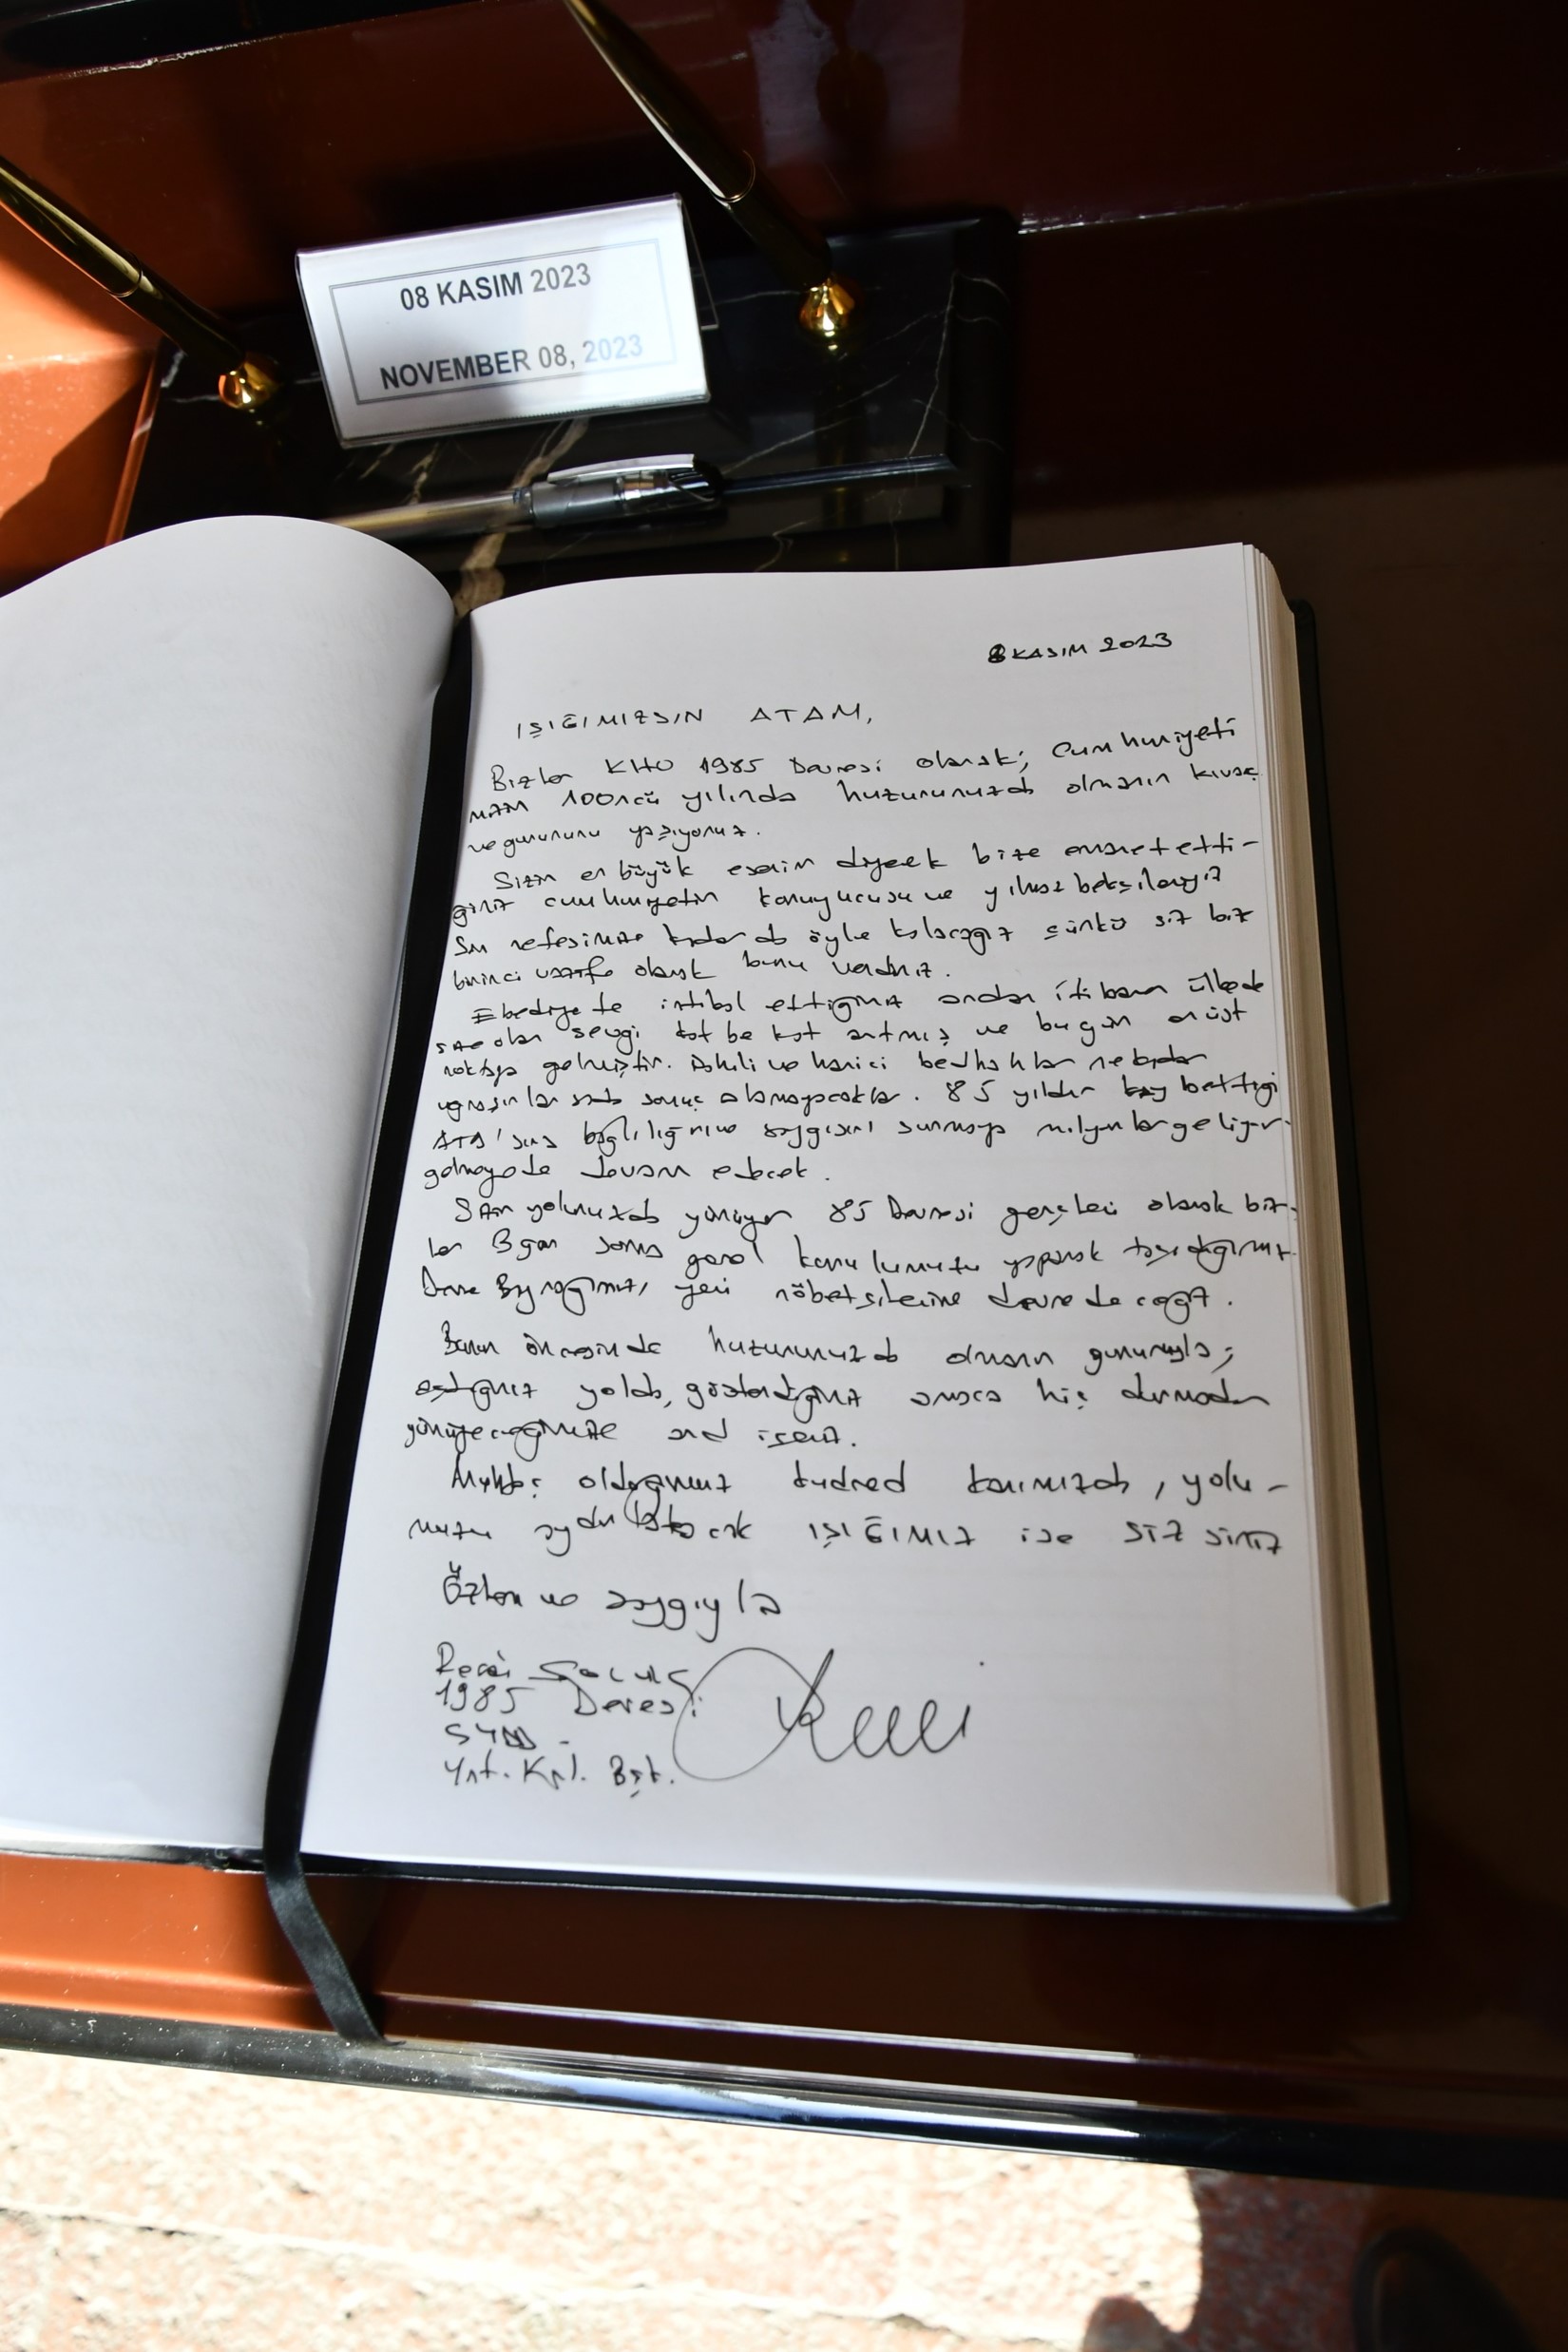 08 KASIM 2023
NOVEMBER 08, 2023
8 KASIM 2023
IŞIĞIMIZSIN ATAM,
Bizler KHO 1985 Devresi olarak; Cumhuriyeti
mizin 100ncü yılında huzurunuzda olmanın kıvanç
ve gururunu yaşıyoruz.
Sizin en büyük eserim diyerek bize emanet etti-
ğiniz cumhuriyetin koruyucusu ve yılmaz bekçileriyiz
Son nefesimize kadar da öyle kalacağız çünkü siz bize
birinci vazife olarak bunu verdiniz.
Ebediyete intikal ettiğiniz andan itibaren ülkede
size olan sevgi kat be kat artmış ve bugün en üst
noktaya gelmiştir. Dahili ve harici bedhahlar ne kadar
uğraşırlarsa da sonuç alamayacaklar. 85 yıldır kaybettiği
ATA'sına bağlılığını ve saygısını sunmaya milyonlar geliyor
gelmeye de devam edecek.
Sizin yolunuzda yürüyen 85 Devresi gençleri olarak biz-
ler 3 gün sonra genel kurulumuzu yaparak taşıdığımız
Devre Bayrağımızı yeni nöbetçilerine devredeceğiz.
Bunun öncesinde huzurunuzda olmanın gururuyla;
açtığınız yolda, gösterdiğiniz amaca hiç durmadan
yürüyeceğimize and içeriz.
Muhtaç olduğumuz kudred kanımızda, yolu-
muzu aydınlatacak IŞIĞIMIZ ise SİZSİNİZ
Özlem ve saygıyla
Recai
1985 Devresi
Ynt. Krl. Bşk.